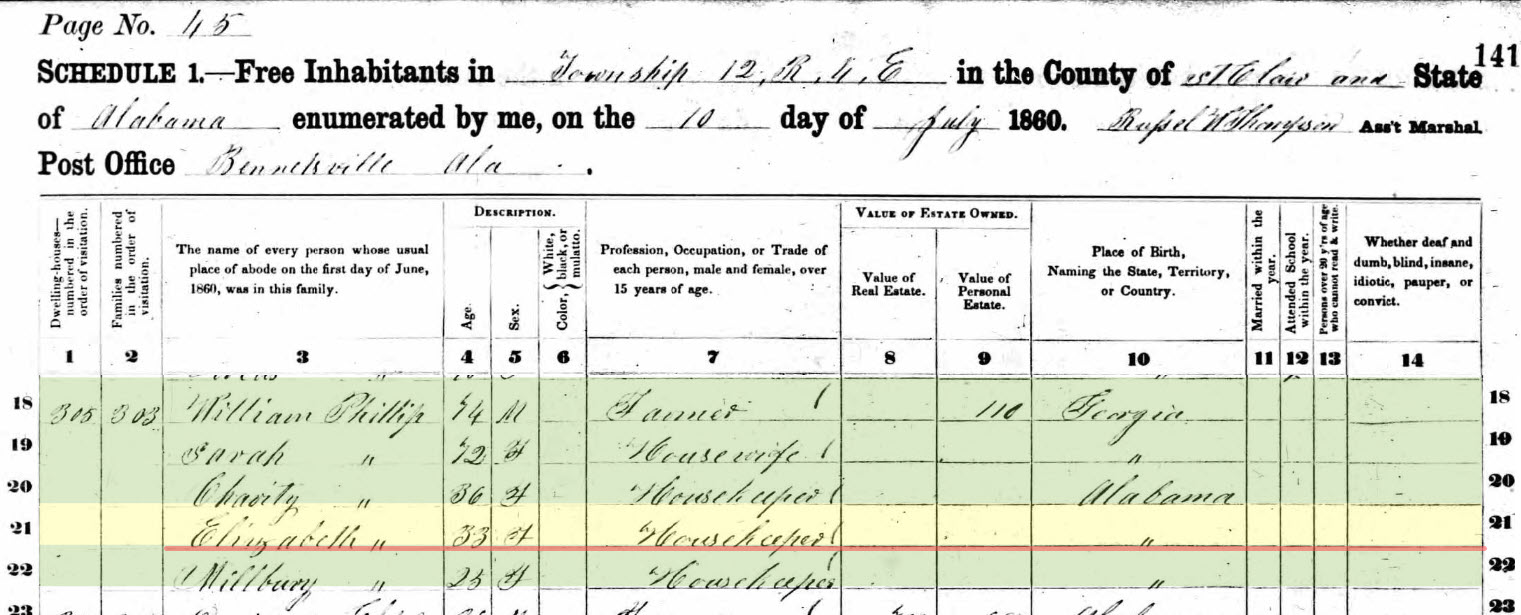 Page No. 45
141
SCHEDULE 1.—Free Inhabitants in Township 12, R 4, E in the County of St Clair and State
of Alabama enumerated by me, on the 10 day of July 1860. Russel W Thompson Ass't Marshal.
Post Office Bennetsville Ala .
Dwelling-houses—numbered in the order of visitation.
Families numbered in the order of visitation.
The name of every person whose usual place of abode on the first day of June, 1860, was in this family.
DESCRIPTION.
Age.
Sex.
Color, { White, black, or mulatto.
Profession, Occupation, or Trade of each person, male and female, over 15 years of age.
VALUE OF ESTATE OWNED.
Value of Real Estate.
Value of Personal Estate.
Place of Birth, Naming the State, Territory, or Country.
Married within the year.
Attended School within the year.
Persons over 20 y'rs of age who cannot read & write.
Whether deaf and dumb, blind, insane, idiotic, pauper, or convict.
1 2 3 4 5 6 7 8 9 10 11 12 13 14
18 305 303 William Phillip 74 M Farmer 110 Georgia 18
19 Sarah " 72 F Housewife " 19
20 Charity " 36 F Housekeeper Alabama 20
21 Elizabeth " 33 F Housekeeper " 21
22 Millbury " 25 F Housekeeper " 22
23 23